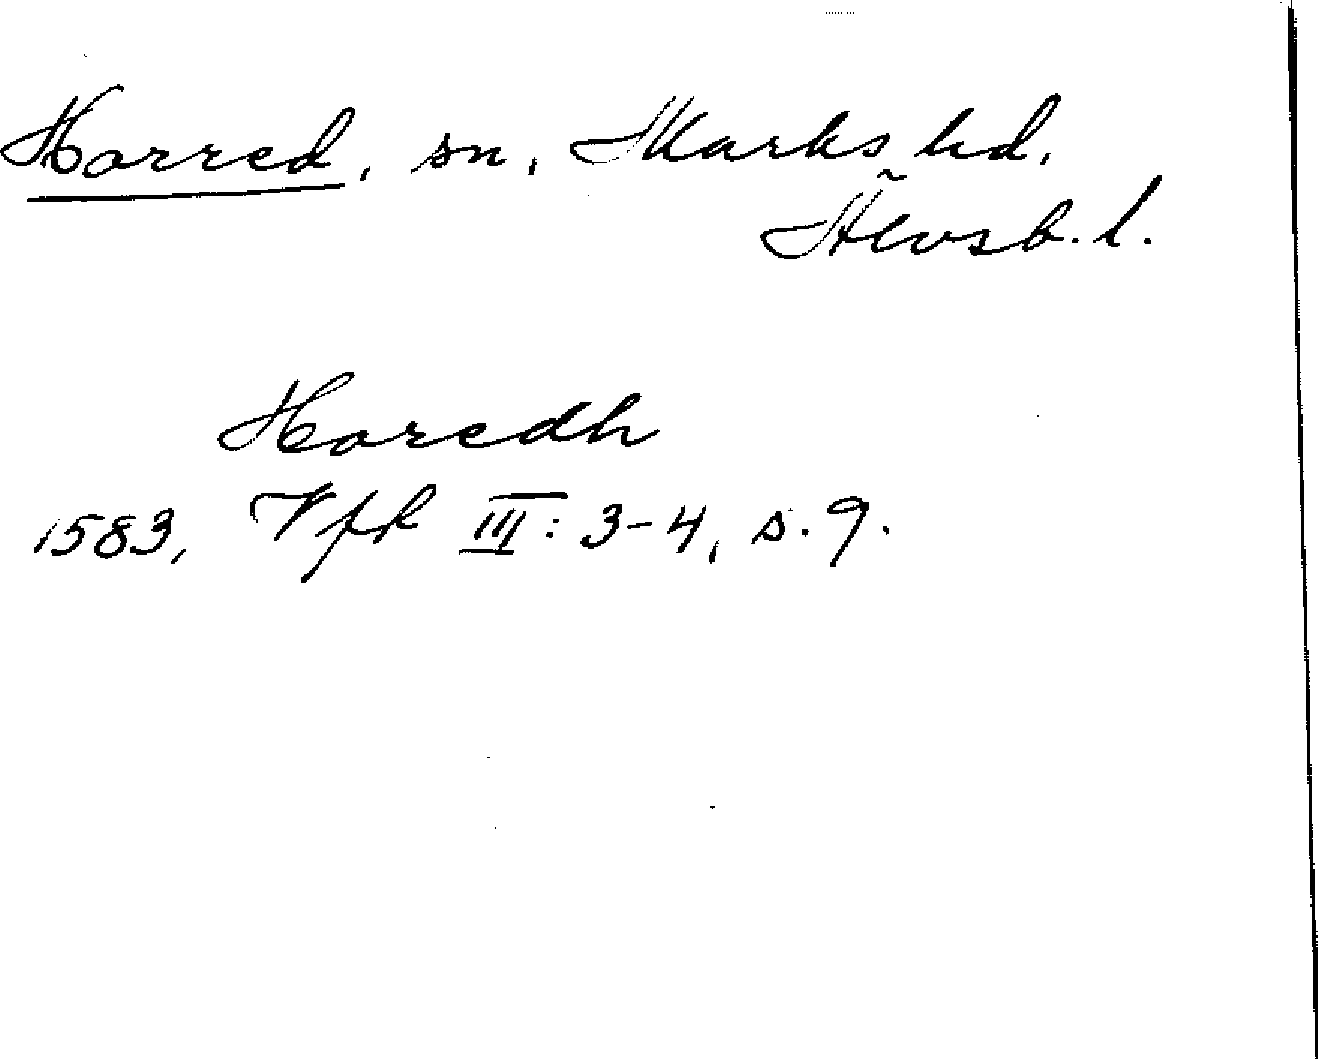 Horred, sn, Marks hd.
Älvsb. l.
Horedh
1583, Vfr III: 3-4, s. 9.